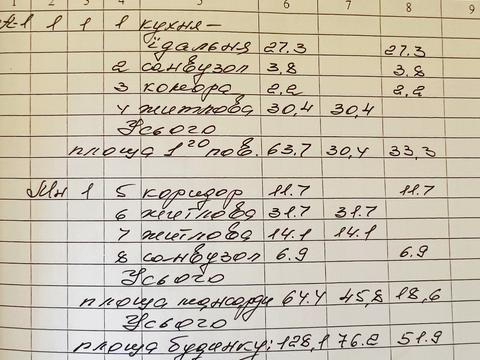 1 2 3 4 5 6 7 8 9
A-1 1 1 1 кухня-
їдальня 27.3 27.3
2 санвузол 3.8 3.8
3 комора 2,2 2,2
4 житлова 30,4 30,4
Усього
площа 1го пов. 63.7 30,4 33,3
Мн 1 5 коридор 11.7 11.7
6 житлова 31.7 31.7
7 житлова 14.1 14.1
8 санвузол 6.9 6.9
Усього
площа мансарди 64.4 45,8 18,6
Усього
площа будинку: 128,1 76.2 51.9